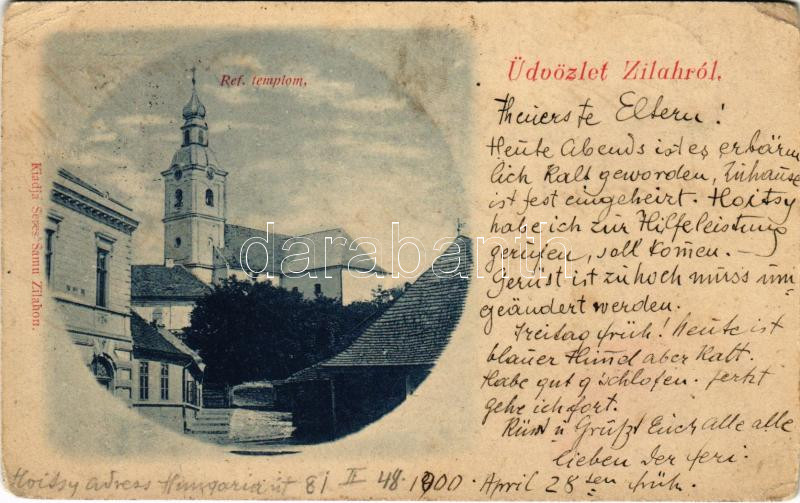 Ref. templom.
Üdvözlet Zilahról.
Kiadja Seres Samu Zilahon.
Theuerste Eltern!
Heute Abends ist es erbärm
lich Kalt geworden, Zuhause
ist fest eingeheizt. Hoitsy
habe ich zur Hilfeleistung
gerufen, soll komen. —
Gerüst ist zu hoch muss um-
geändert werden.
Freitag früh! Heute ist
blauer Himel aber Kalt.
Habe gut g'schlofen. Jetzt
gehe ich fort.
Küsst u Grüßt Euch alle alle
lieben Der Feri.
1900. April 28 ten früh.
Hoitsy adress Hungaria út 81 II 48.
darabanth